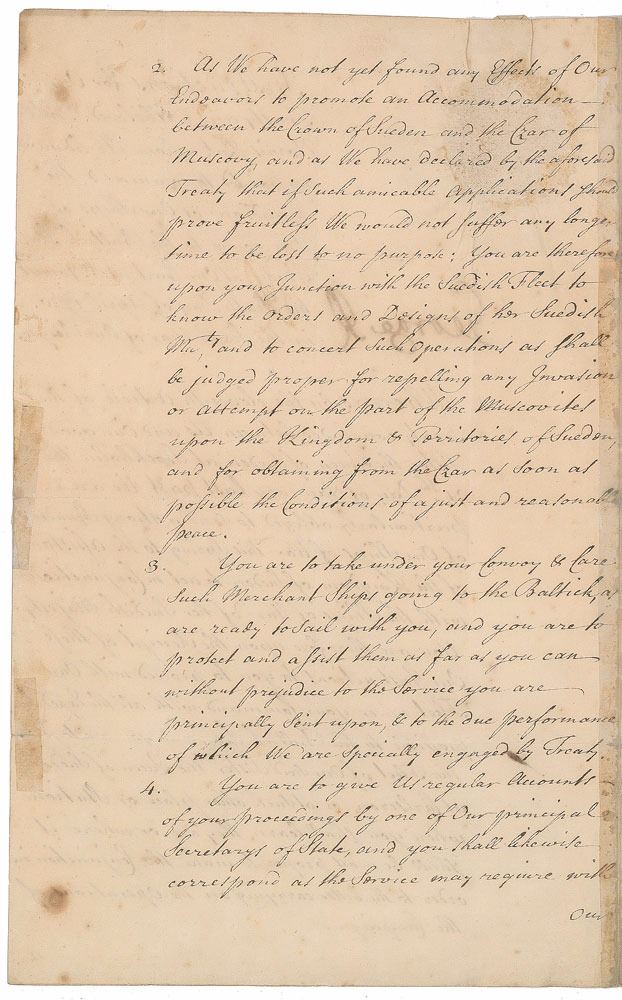 2. As We have not yet found any Effects of Our
Endeavors to promote an Accommodation —
between the Crown of Sueden and the Czar of
Muscovy, and as We have declared by the aforesaid
Treaty that if Such amicable Applications should
prove fruitless We would not suffer any longer
time to be lost to no purpose; You are therefore
upon your Junction with the Suedish Fleet to
know the Orders and Designs of her Suedish
Ma:ty, and to concert Such Operations as shall
be judged proper for repelling any Invasion
or attempt on the part of the Muscovites
upon the Kingdom & Territories of Sueden,
and for obtaining from the Czar as soon as
possible the Conditions of a just and reasonable
peace.
3. You are to take under your Convoy & Care
Such Merchant Ships going to the Baltick, as
are ready to Sail with you, and you are to
protect and assist them as far as you can
without prejudice to the Service you are —
principally Sent upon, & to the due performance
of which We are specially engaged by Treaty.
4. You are to give Us regular Accounts —
of your proceedings by one of Our principal
Secretarys of State, and you shall likewise
correspond as the Service may require with
Our